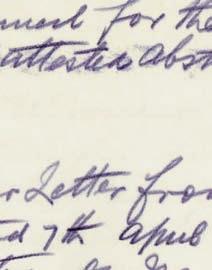 for the
attested Abst
r Letter from
d 7th April